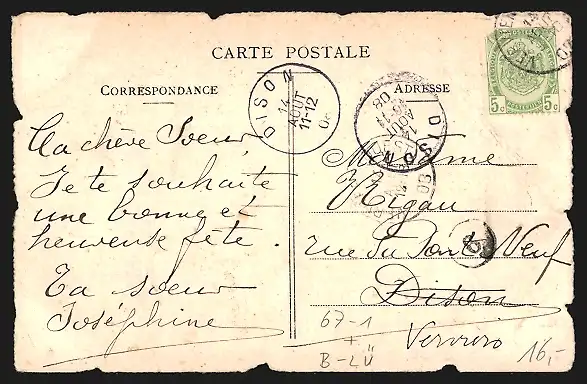 CARTE POSTALE
CORRESPONDANCE
ADRESSE
5c 5c
DISON
14
AOUT
11-12
08
DISON
14
AOUT
08
Ma chère Soeur
Je te souhaite
une bonne et
heureuse fête.
Ta soeur
Joséphine
Madame
Rigau
rue du Pont Neuf
Dison
Verviers
67-1
+
B-LÜ
16,-